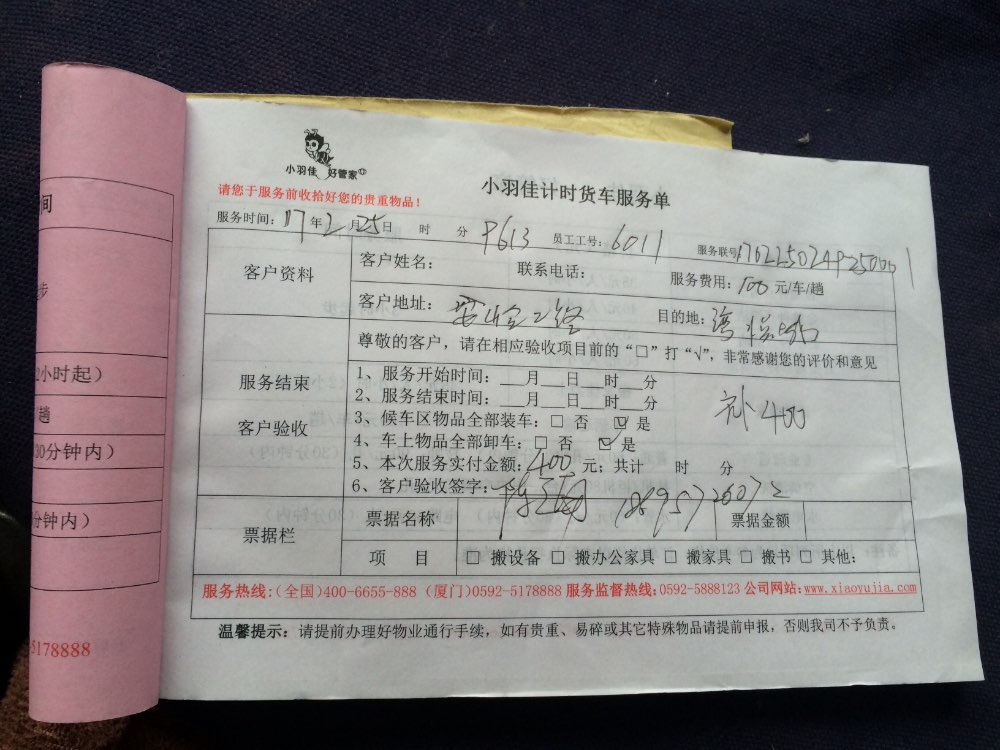 小羽佳 好管家
小羽佳计时货车服务单
请您于服务前收拾好您的贵重物品！
服务时间：17年2月25日 时 分 P613 员工工号：6011 服务联号
客户资料
客户姓名： 联系电话： 服务费用：100元/车/趟
客户地址： 目的地：
尊敬的客户，请在相应验收项目前的“□”打“√”，非常感谢您的评价和意见
服务结束
客户验收
1、服务开始时间：___月___日___时___分
2、服务结束时间：___月___日___时___分
3、候车区物品全部装车：□ 否 ☑ 是
4、车上物品全部卸车：□ 否 ☑ 是
5、本次服务实付金额：400元；共计 时 分
6、客户验收签字：
补400
票据栏
票据名称 票据金额
项 目 □ 搬设备 □ 搬办公家具 □ 搬家具 □ 搬书 □ 其他：
服务热线：（全国）400-6655-888（厦门）0592-5178888 服务监督热线：0592-5888123 公司网站：www.xiaoyujia.com
温馨提示：请提前办理好物业通行手续，如有贵重、易碎或其它特殊物品请提前申报，否则我司不予负责。
间
步
2小时起）
趟
30分钟内）
分钟内）
5178888